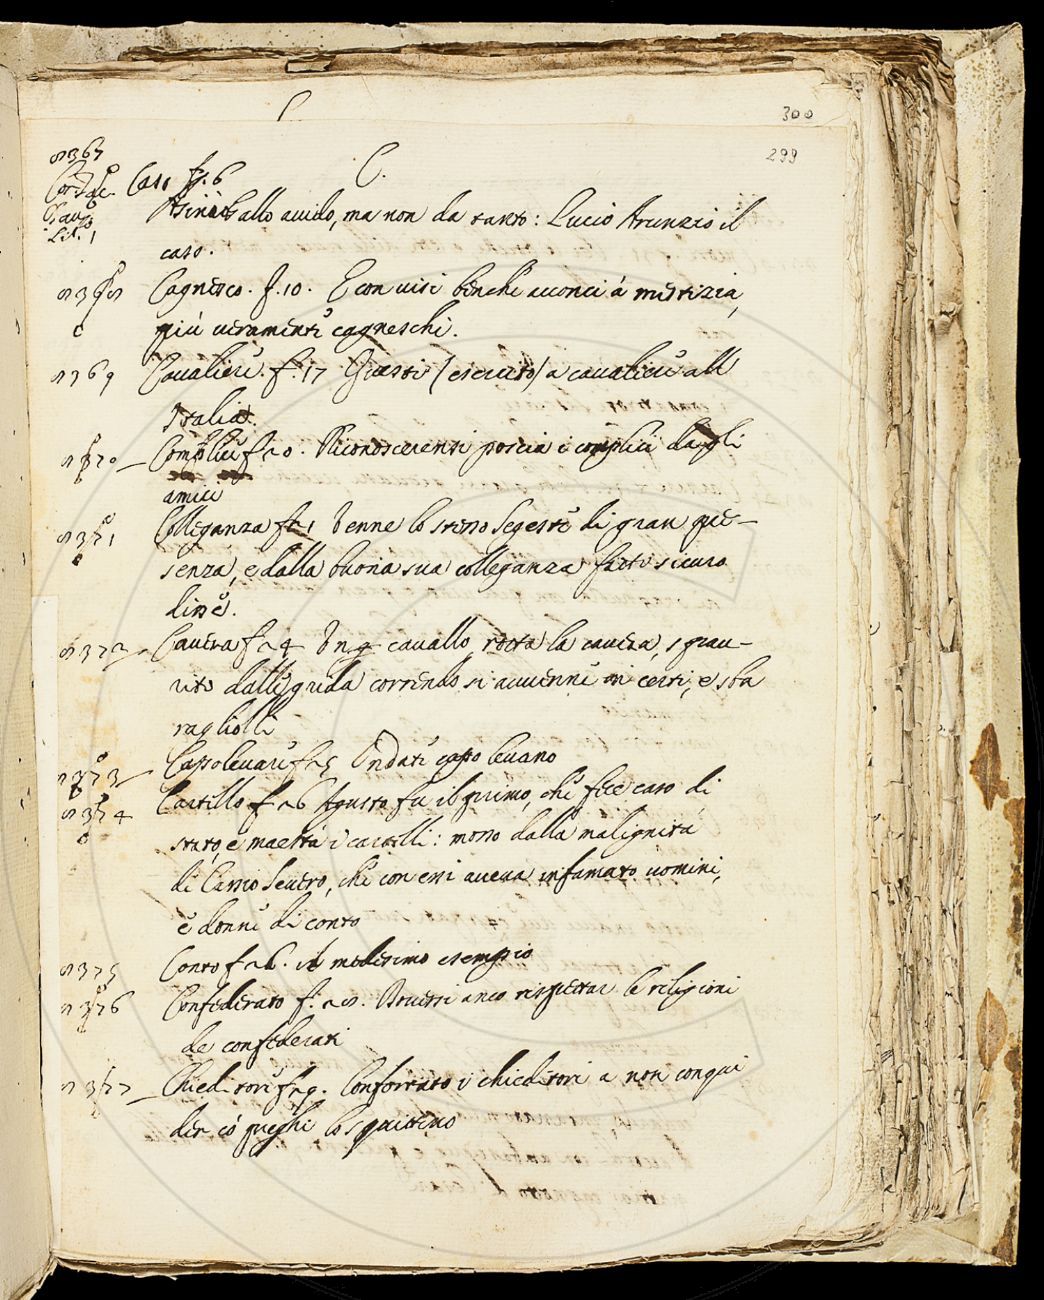 C
300
299
C.
8367
Caso f. 6
Asinio Gallo avido, ma non da tanto: Lucio Arunzio il
caso.
8368 Cagnesco. f. 10. E con visi benchè acconci á mestizia,
c più veramente cagneschi.
8369 Cavaliere. f. 17 Questi (esercito) a cavaliere all
Italia.
8370 Complice f. 20. Riconoscerensi poscia i complici da gli
amici
8371 Colleganza f. 21 Venne lo stesso Segeste di gran pre-
senza, e dalla buona sua colleganza fatto sicuro
disse.
8372 Caveza f. 24 Un cavallo, rotta la caveza, spau-
rito dalle grida correndo si avvenne in certi, e sba
ragliolli
8373 Capolevare f. 25 Ondati capo levano
8374 Cartello f. 26 Agusto fu il primo, che fece caso di
stato, e maestá i cartelli: mosso dalla malignitá
di Cassio Severo, che con essi aveva infamato uomini,
e donne di conto
8375 Conto f. 26. il medesimo esempio
8376 Confederato f. 28. Doversi anco rispettar le religioni
de confederati
8377 Chieditore f. 29. Confortato i chieditori a non con qui
der ió preghi lo squittino